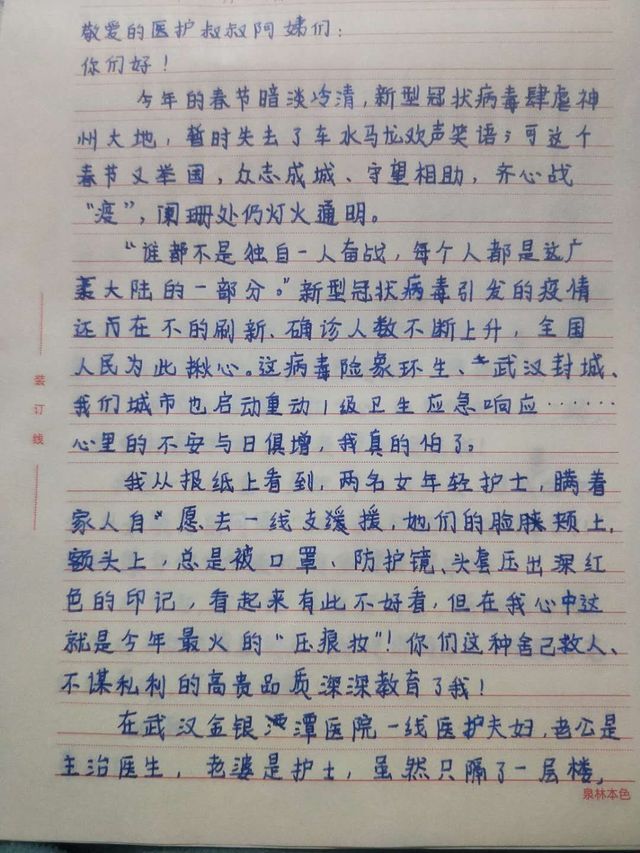 敬爱的医护叔叔阿姨们：
你们好！
今年的春节暗淡冷清，新型冠状病毒肆虐神
州大地，暂时失去了车水马龙欢声笑语；可这个
春节又举国，众志成城、守望相助，齐心战
“疫”，阑珊处仍灯火通明。
“谁都不是独自一人奋战，每个人都是这广
袤大陆的一部分。”新型冠状病毒引发的疫情
还在不的刷新、确诊人数不断上升，全国
人民为此揪心。这病毒险象环生、武汉封城、
我们城市也启动重动1级卫生应急响应……
心里的不安与日俱增，我真的怕了。
我从报纸上看到，两名女年轻护士，瞒着
家人自愿去一线支援，她们的脸颊上，
额头上，总是被口罩、防护镜、头套压出深红
色的印记，看起来有些不好看，但在我心中这
就是今年最火的“压痕妆”！你们这种舍己救人、
不谋私利的高贵品质深深教育了我！
在武汉金银潭医院一线医护夫妇，老公是
主治医生，老婆是护士，虽然只隔了一层楼，
装
订
线
泉林本色